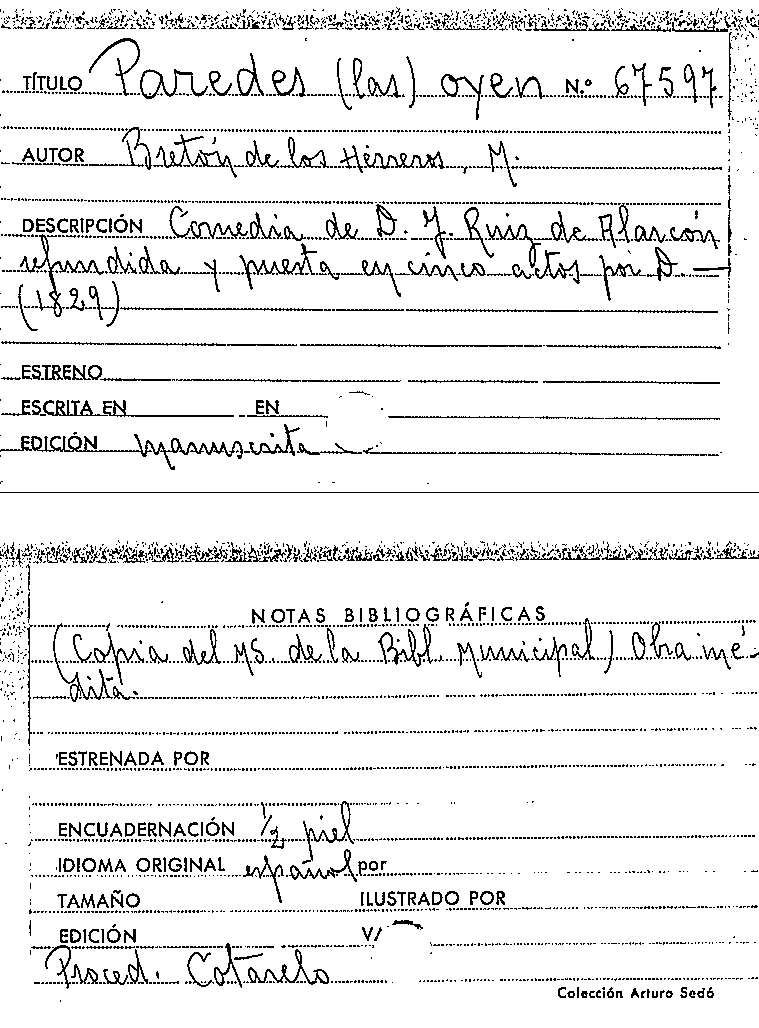 TÍTULO Paredes (las) oyen N.º 67597
AUTOR Bretón de los Herreros, M.
DESCRIPCIÓN Comedia de D. J. Ruiz de Alarcón
refundida y puesta en cinco actos por D. —
(1829)
ESTRENO
ESCRITA EN EN
EDICIÓN manuscrita
NOTAS BIBLIOGRÁFICAS
(Copia del MS. de la Bibl. Municipal) Obra iné-
dita.
ESTRENADA POR
ENCUADERNACIÓN 1/2 piel
IDIOMA ORIGINAL español por
TAMAÑO ILUSTRADO POR
EDICIÓN V/
Proced. Cotarelo
Colección Arturo Sedó